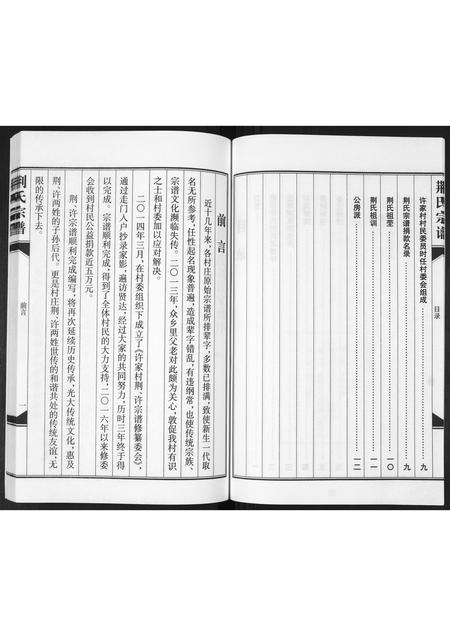 荆氏宗谱
目录
许家村村民委员时任村委会组成……九
荆氏宗谱捐款名录……九
荆氏祖茔……一〇
荆氏祖训……一一
公房派……一二
前言
近十几年来，各村庄原始宗谱所排辈字，多数已排满，致使新生一代取
名无所参考，任性起名现象普遍，造成辈字错乱，有违纲常，也使传统宗族、
宗谱文化濒临失传。二〇一三年，众乡里父老对此颇为关心，敦促我村有识
之士和村委加以应对解决。
二〇一四年三月，在村委组织下成立了《许家村荆、许宗谱修纂委会》，
通过走门入户抄录家影，遍访贤达，经过大家的共同努力，历时三年终于得
以完成。宗谱顺利完成，得到了全体村民的大力支持，二〇一六年以来修委
会收到村民公益捐款近五万元。
荆、许宗谱顺利完成编写，将再次延续历史传承，光大传统文化，惠及
荆、许两姓的子孙后代。更是村庄荆、许两姓世传的和谐共处的传统友谊，无
限的传承下去。
荆氏宗谱
前言
一